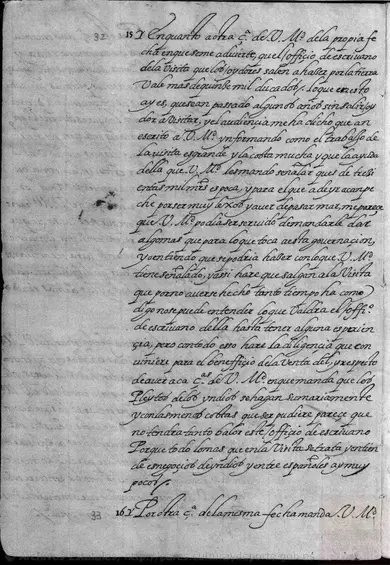 15 Y En quanto a otra çª de V. Mª de la propia fe
cha en que se me advierte, que el officio de escrivano
de la Visita que los oydores salen a hazer por la tierra
Vale mas de quinze mil ducados lo que en esto
ay es, que sean passado algunos años sin salir oy
dor a Visitar, y el audiencia me ha dicho que an
escrito a V. Mª ynformando como el trabajo de
la vista es grande y la costa mucha y que la ayuda
della que V. Mª les mando señalar que es de trezi
entas mil mrs es poca, y para el que a de yr a campe
che por ser muy lexos y aver de pasar mar, me pareçe
que V. Mª podia ser servido de mandarle dar
algo mas que para lo que toca a esta governacion,
yo entiendo que se podria hazer con lo que V. Mª
tiene señalado, y assi hare que salgan a la Visita
que por no averse hecho tanto tiempo ha como
digo no se puede entender lo que Valdra el offiº
de escrivano della hasta tener alguna esperien
çia, pero con todo esso hare la diligençia que con
viniere para el benefficio de la venta del, y respeto
de aver aca çª de V. Mª en que manda que los
Pleytos de los yndios se hagan sumariamente
y con las menos costas que ser pudiere pareçe que
no tendra tanto balor este officio de escrivano
Porque todo lo mas que en la Visita se trata y entien
de es negoçios de yndios y entre españoles ay muy
pocos
16 Y Por otra çª de la misma fecha manda V. Mª